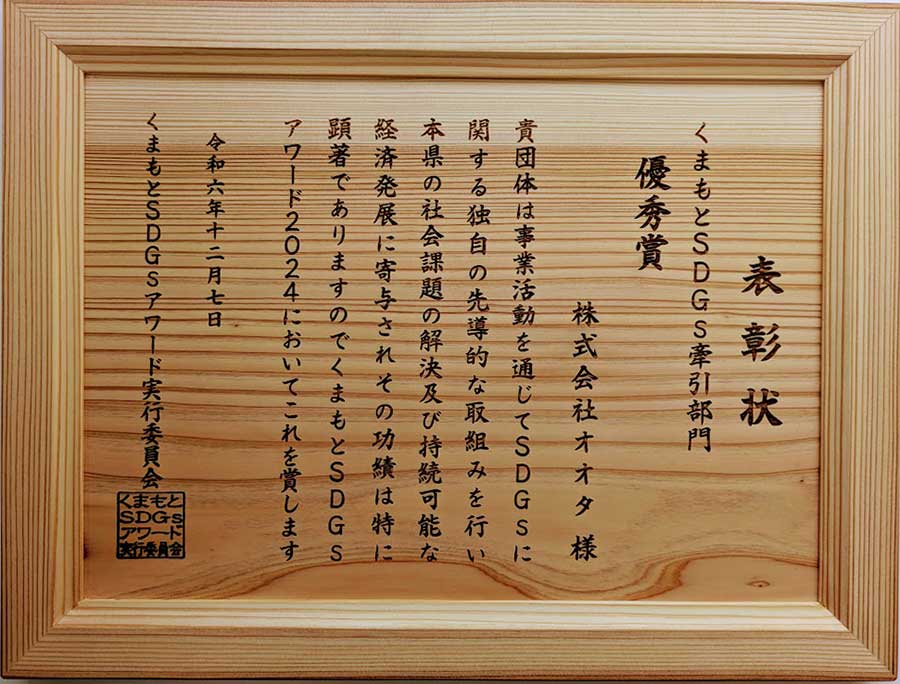 表彰状
くまもとSDGs牽引部門
優秀賞
株式会社オオタ 様
貴団体は事業活動を通じてSDGsに
関する独自の先導的な取組みを行い
本県の社会課題の解決及び持続可能な
経済発展に寄与されその功績は特に
顕著でありますのでくまもとSDGs
アワード2024においてこれを賞します
令和六年十二月七日
くまもとSDGsアワード実行委員会
くまもと
SDGs
アワード
実行委員会